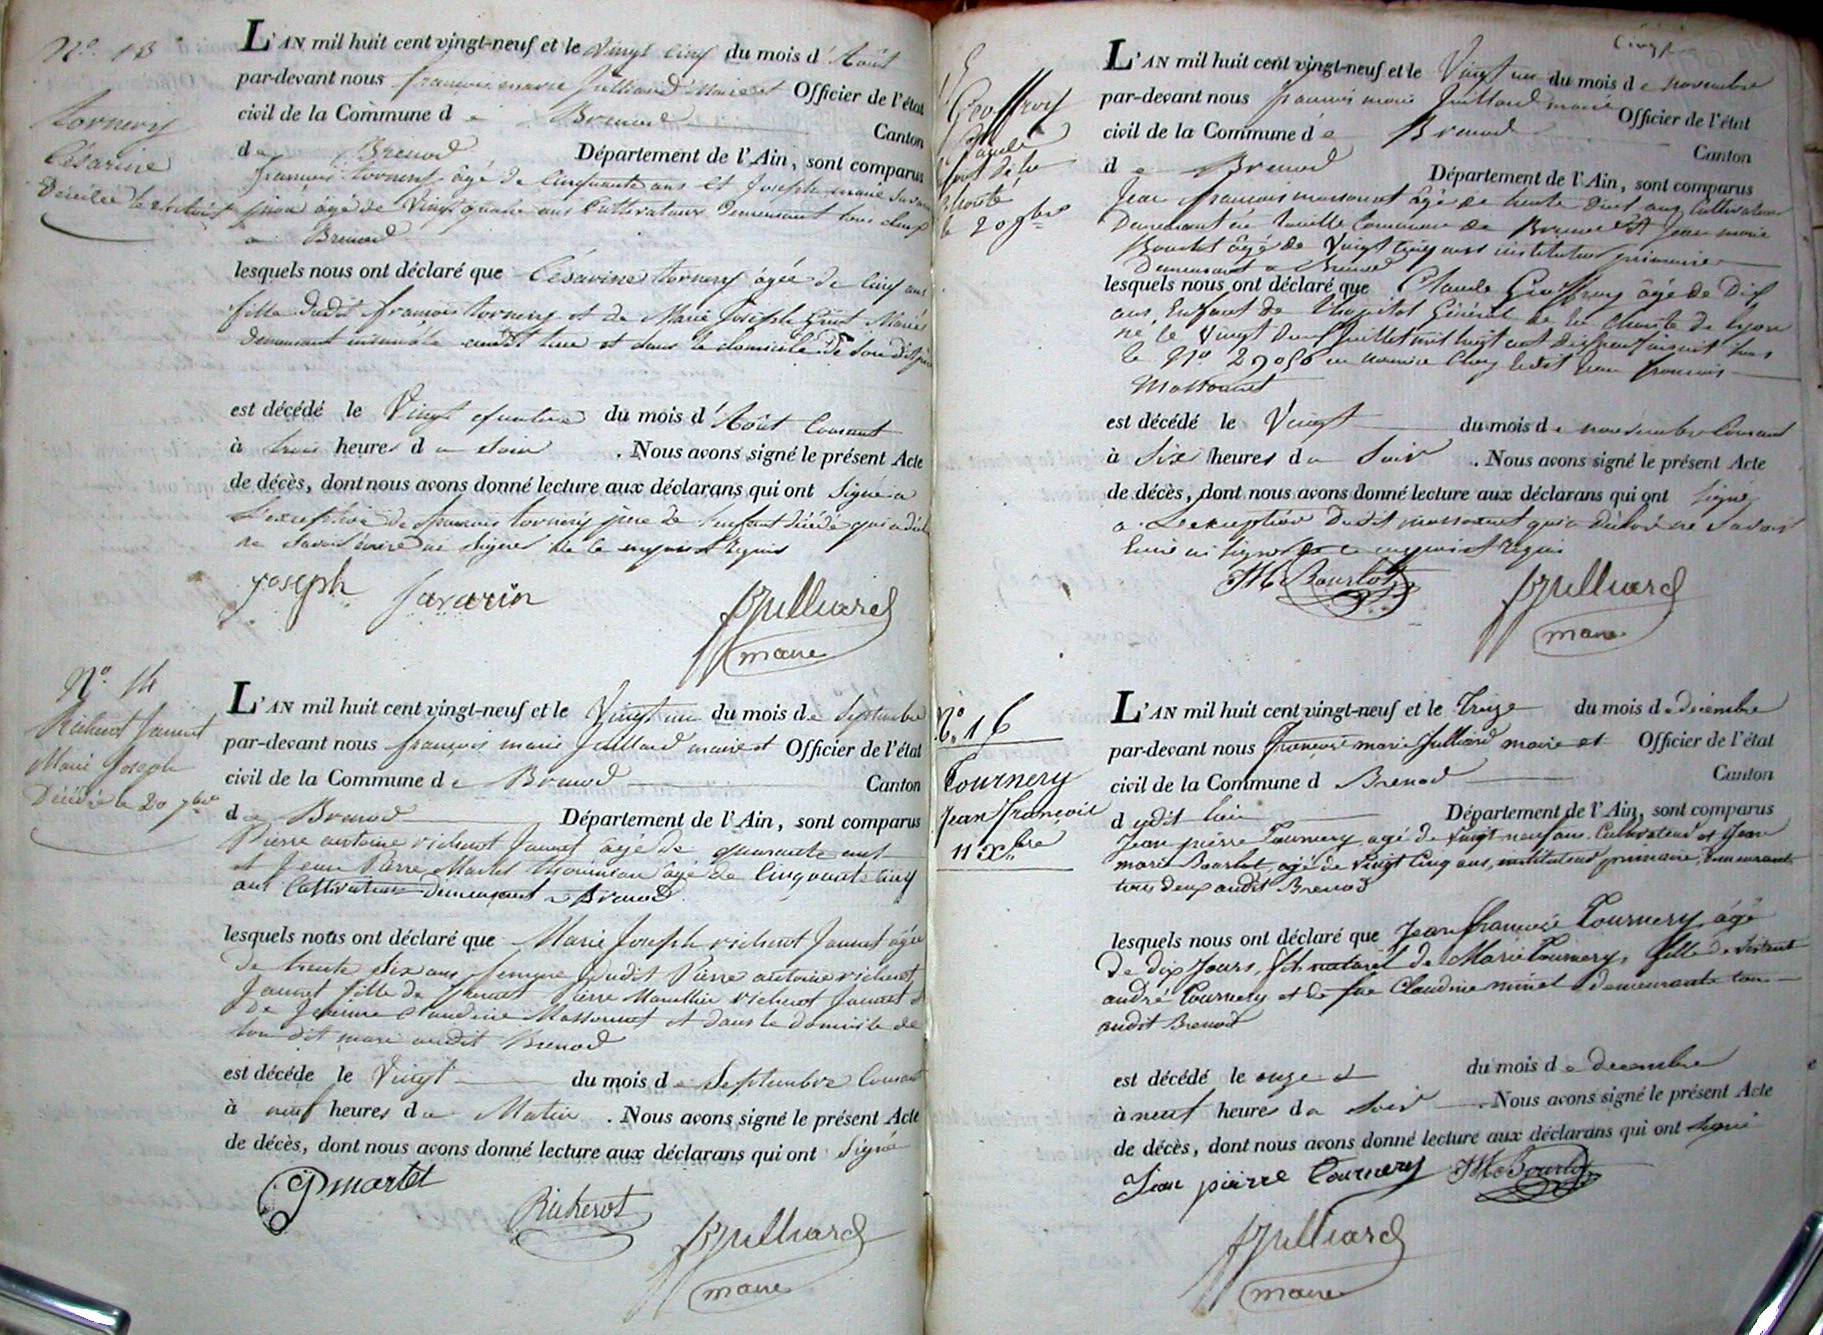 N.º 13
tornery
Césarine
Décédée le 24 Août
L'AN mil huit cent vingt-neuf et le vingt cinq du mois d' Août
par-devant nous françois marie Julliard Maire et Officier de l'état
civil de la Commune de Brenod Canton
de Brenod Département de l'Ain, sont comparus
françois tornery âgé de cinquante ans et Joseph marie Savarin
âgé de vingt quatre ans Cultivateurs demeurant tous deux
a Brenod
lesquels nous ont déclaré que Césarine tornery âgée de cinq ans
fille dudit françois tornery et de Marie Joseph Mariés
demeurant ensemble audit lieu et dans le domicile de son dit père
est décédé le Vingt quatre du mois d' Août Courant
à trois heures du soir . Nous avons signé le présent Acte
de décès, dont nous avons donné lecture aux déclarans qui ont Signé a
L'exception de françois tornery père de l'enfant décédé qui a déclaré
ne savoir écrire ni signer de ce enquis et requis
Joseph Savarin
fJulliard
maire
Nº. 14
Richerot Jannet
Marie Joseph
Décédée le 20 7bre
L'AN mil huit cent vingt-neuf et le Vingt un du mois de Septembre
par-devant nous françois marie Julliard maire et Officier de l'état
civil de la Commune de Brenod Canton
de Brenod Département de l'Ain, sont comparus
Pierre antoine richerot Jannet âgé de quarante ans
et Jean Pierre Martel âgé de Cinquante cinq
ans Cultivateurs Demeurant a Brenod
lesquels nous ont déclaré que Marie Joseph richerot Jannet âgée
de trente Six ans femme dudit Pierre antoine richerot
Jannet fille de Pierre richerot Jannet et
De Jeanne Claudine Massonnet et dans le domicile de
son dit mari audit Brenod
est décédé le Vingt du mois de Septembre Courant
à neuf heures du Matin . Nous avons signé le présent Acte
de décès, dont nous avons donné lecture aux déclarans qui ont Signé
JPmartel
Richerot
fJulliard
maire
Geoffroy
Claude
L'AN mil huit cent vingt-neuf et le Vingt un du mois de novembre
par-devant nous françois marie Julliard maire Officier de l'état
civil de la Commune de Brenod Canton
de Brenod Département de l'Ain, sont comparus
Jean françois massonnet âgé de trente ans Cultivateur
Demeurant Commune de Brenod Et Jean marie
Bourlot âgé de Vingt cinq ans instituteur primaire
Demeurant a Brenod
lesquels nous ont déclaré que Claude Geoffroy âgé de Dix
ans, Enfant de l'hopital Général de la charité de lyon
né le Vingt Juillet mil huit cent Dix neuf inscrit sous
le Nº 29050 en nourrice chez ledit Jean françois
Massonnet
est décédé le Vingt du mois de novembre Courant
à Six heures du Soir . Nous avons signé le présent Acte
de décès, dont nous avons donné lecture aux déclarans qui ont signé
a L'exception Dudit massonnet qui a déclaré ne Savoir
Ecrire ni Signer de ce enquis et requis
JM Bourlot
fJulliard
maire
Nº. 16
Tournery
Jean françois
11 Xbre
L'AN mil huit cent vingt-neuf et le Treize du mois de décembre
par-devant nous françois marie Julliard maire et Officier de l'état
civil de la Commune d Brenod Canton
d udit lieu Département de l'Ain, sont comparus
Jean pierre Tournery agé de vingt neuf ans Cultivateur et Jean
marie Bourlot, agé de vingt Cinq ans, instituteur primaire, Demeurants
tous deux audit Brenod
lesquels nous ont déclaré que Jean françois Tournery, âgé
de dix Jours, fils naturel de Marie Tournery, fille de
andré Tournery et de Claudine minet demeurante
audit Brenod
est décédé le onze du mois de decembre
à neuf heures du Soir . Nous avons signé le présent Acte
de décès, dont nous avons donné lecture aux déclarans qui ont signé
Jean pierre Tournery JM Bourlot
fJulliard
maire